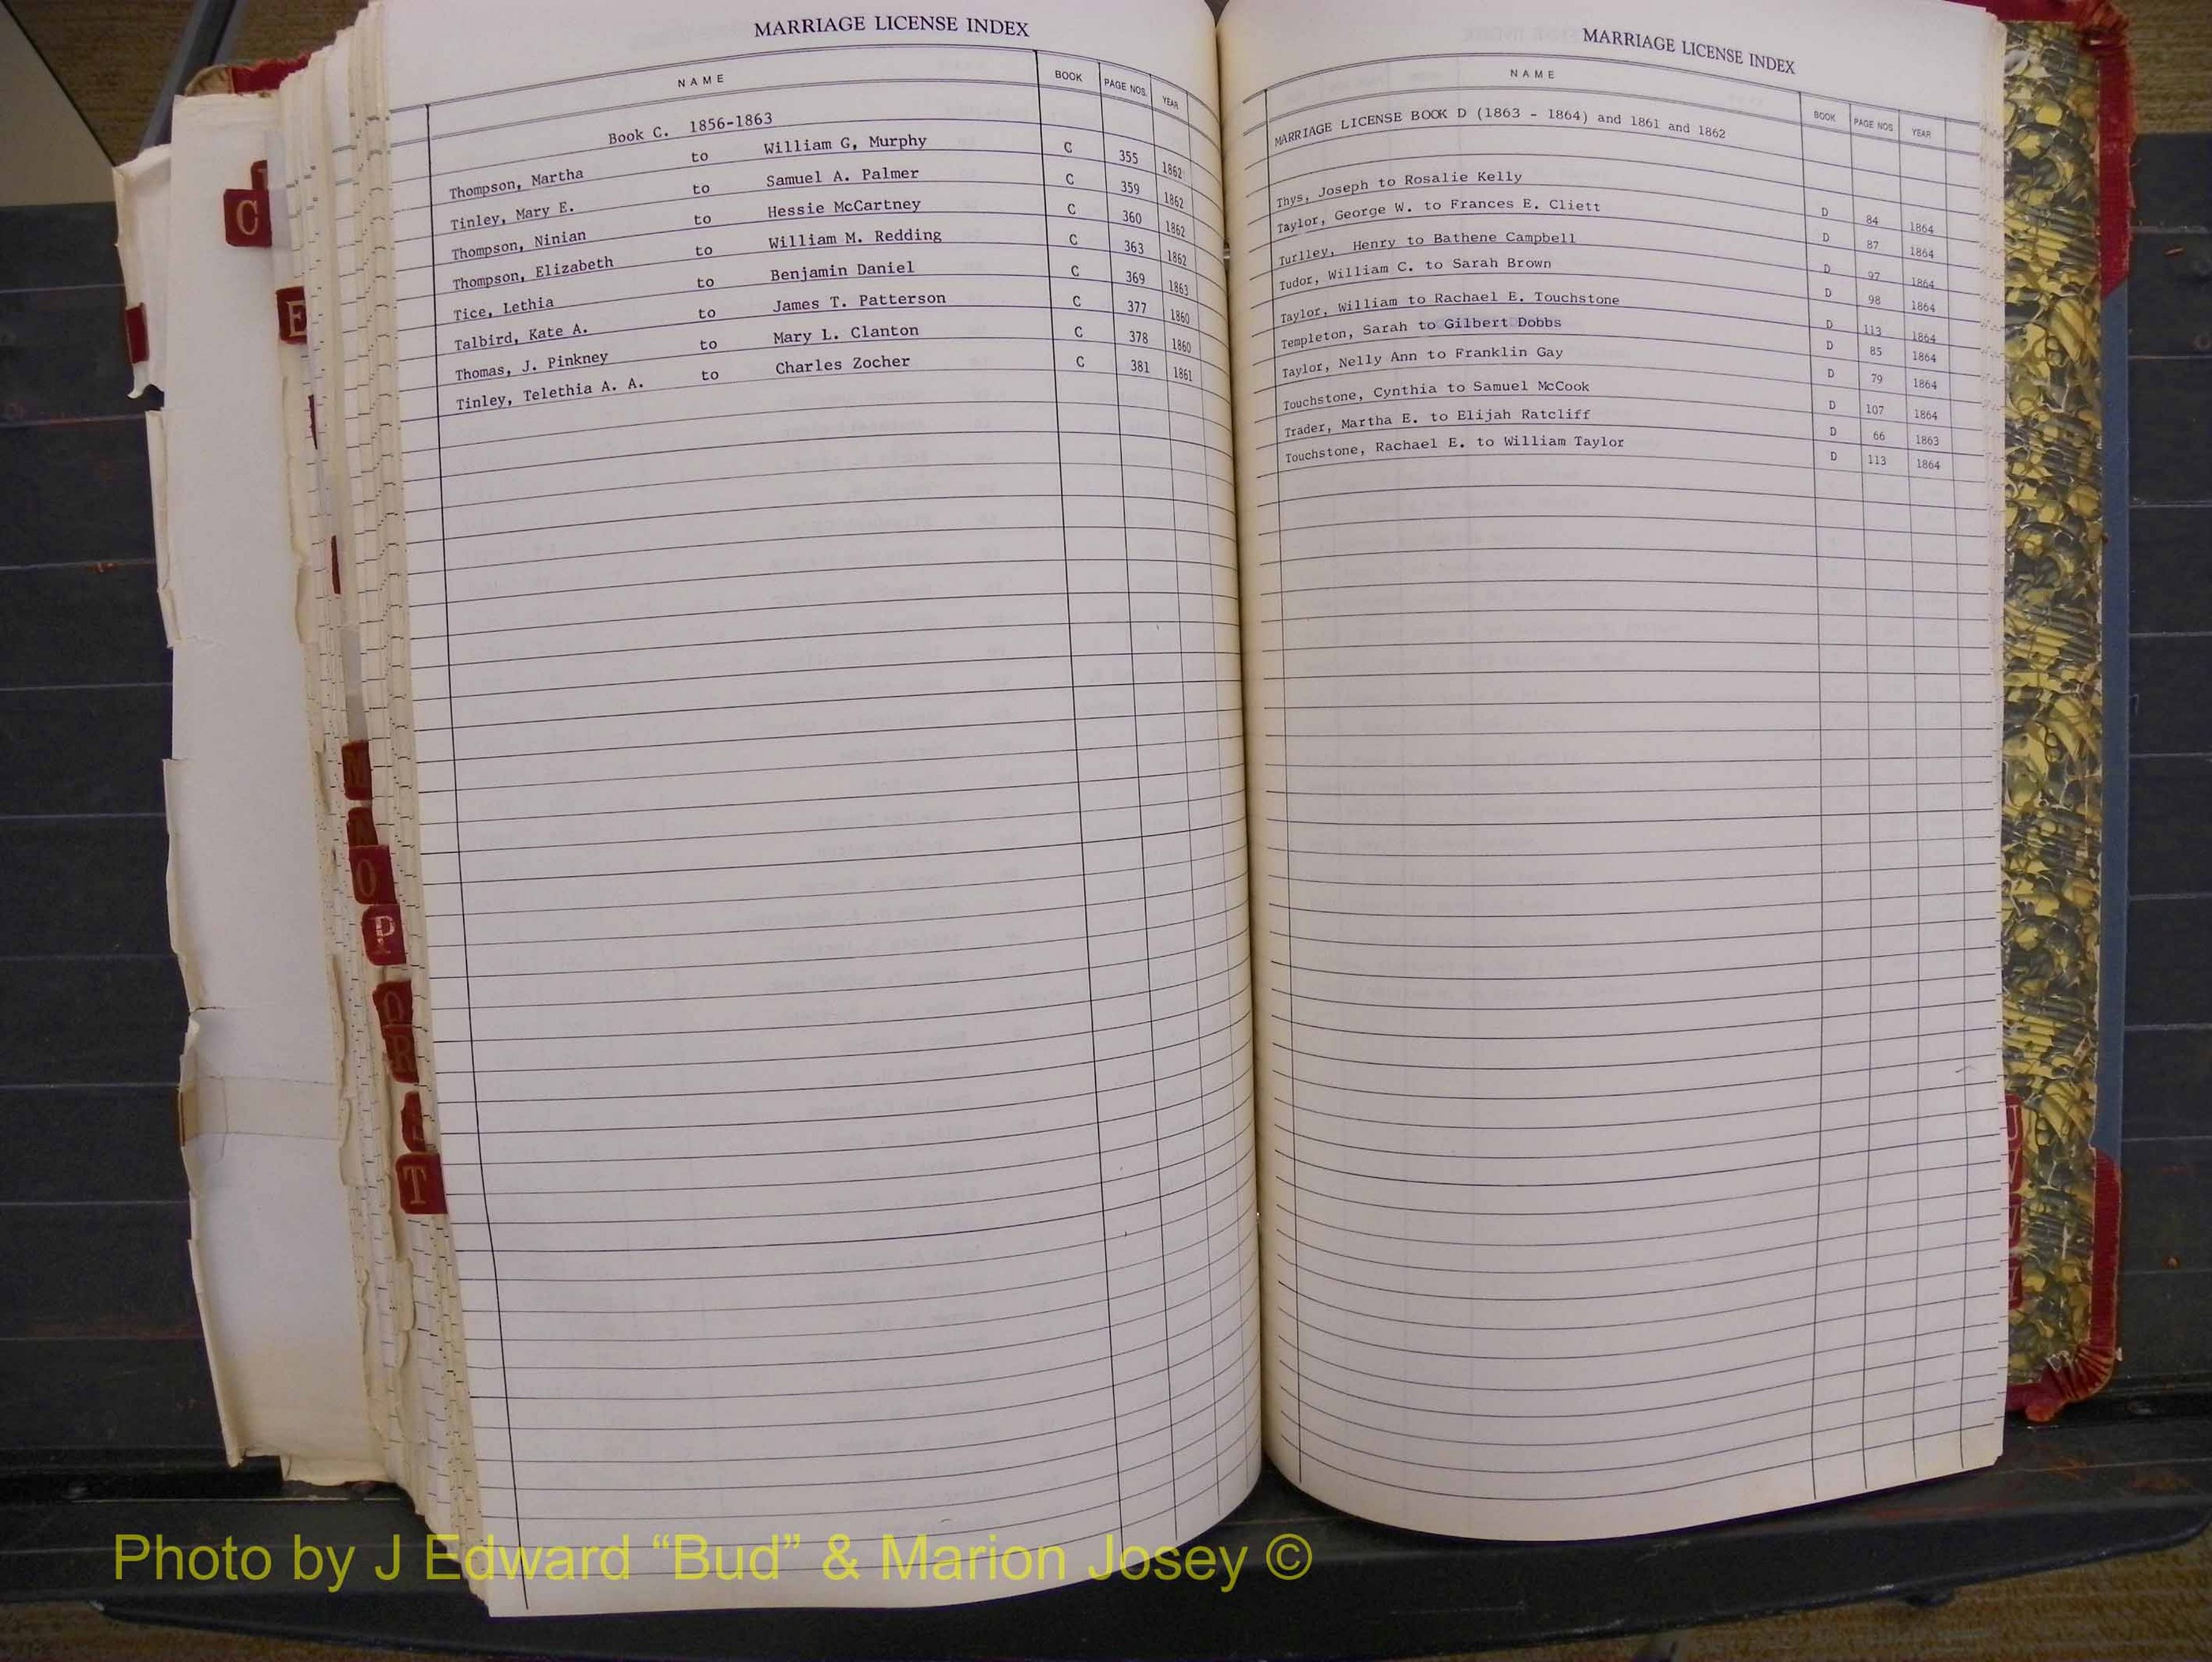 MARRIAGE LICENSE INDEX
NAME BOOK PAGE NOS. YEAR
Book C. 1856-1863
Thompson, Martha to William G, Murphy C 355 1862
Tinley, Mary E. to Samuel A. Palmer C 359 1862
Thompson, Ninian to Hessie McCartney C 360 1862
Thompson, Elizabeth to William M. Redding C 363 1862
Tice, Lethia to Benjamin Daniel C 369 1863
Talbird, Kate A. to James T. Patterson C 377 1860
Thomas, J. Pinkney to Mary L. Clanton C 378 1860
Tinley, Telethia A. A. to Charles Zocher C 381 1861
MARRIAGE LICENSE INDEX
NAME BOOK PAGE NOS YEAR
MARRIAGE LICENSE BOOK D (1863 - 1864) and 1861 and 1862
Thys, Joseph to Rosalie Kelly D 84 1864
Taylor, George W. to Frances E. Cliett D 87 1864
Turlley, Henry to Bathene Campbell D 97 1864
Tudor, William C. to Sarah Brown D 98 1864
Taylor, William to Rachael E. Touchstone D 113 1864
Templeton, Sarah to Gilbert Dobbs D 85 1864
Taylor, Nelly Ann to Franklin Gay D 79 1864
Touchstone, Cynthia to Samuel McCook D 107 1864
Trader, Martha E. to Elijah Ratcliff D 66 1863
Touchstone, Rachael E. to William Taylor D 113 1864
C
E
M
O
P
Q
R
T
Photo by J Edward “Bud” & Marion Josey ©